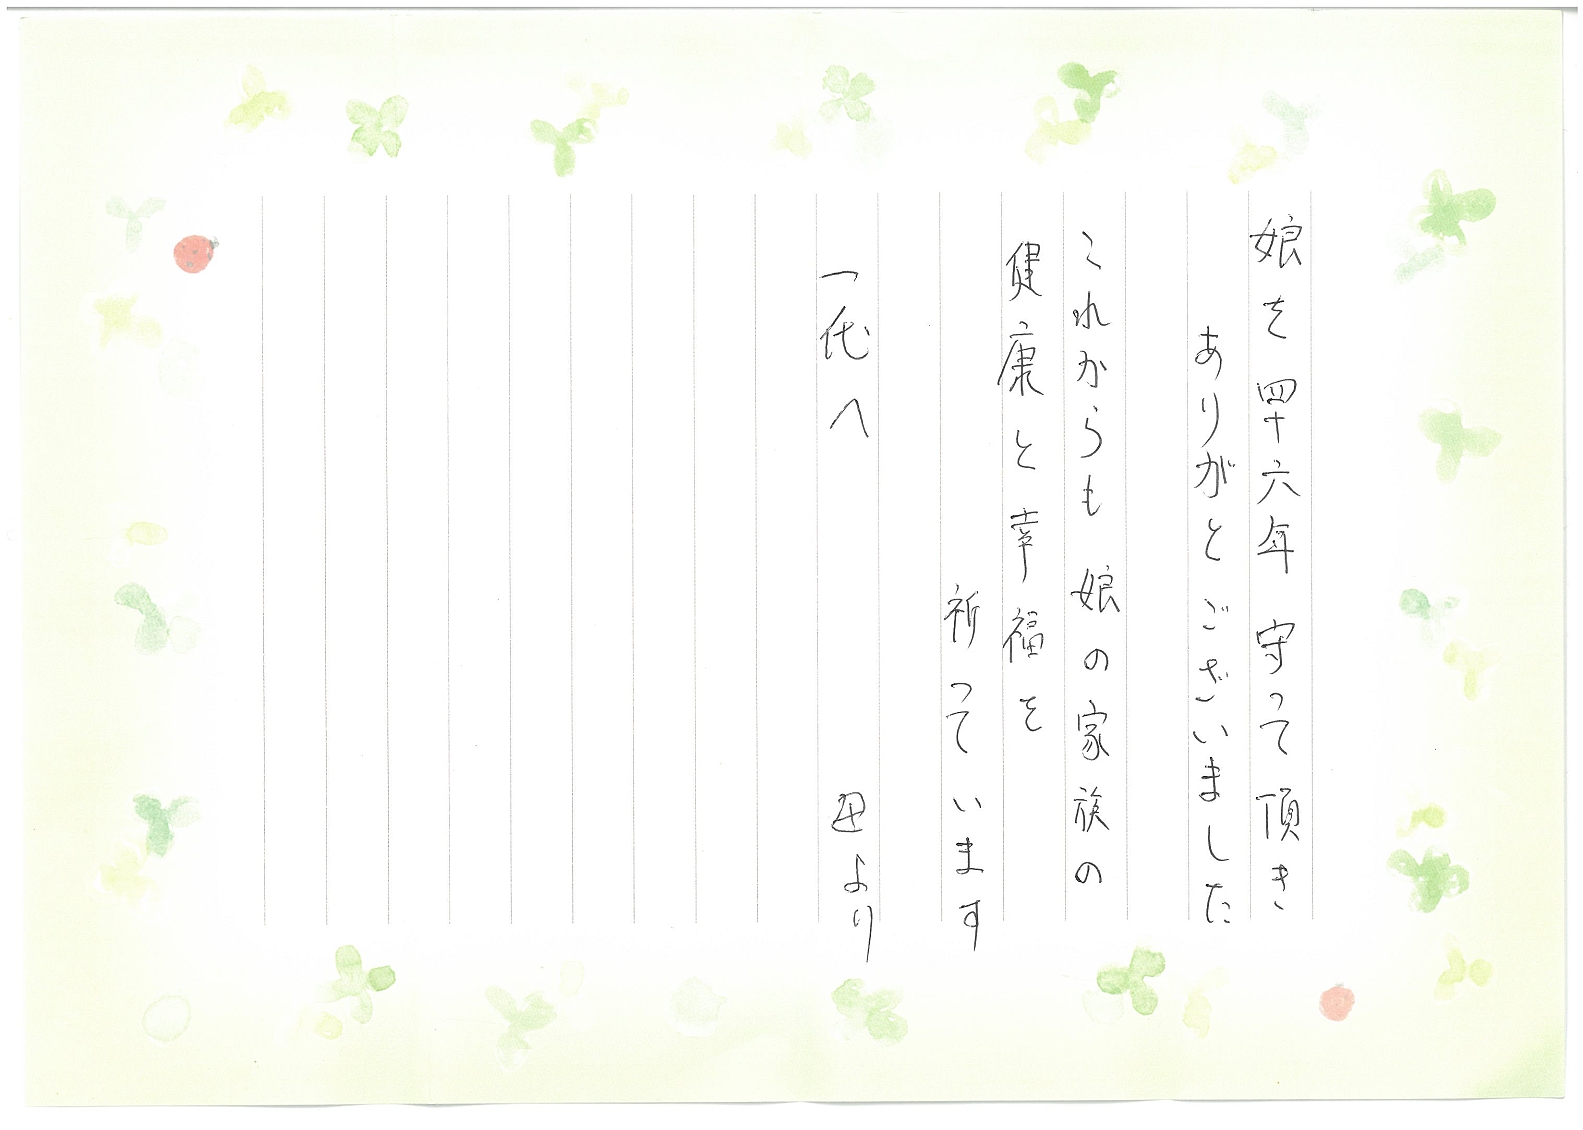 娘を四十六年 守って頂き
ありがとございました
これからも 娘の家族の
健康と幸福を
祈っています
一代へ 母より